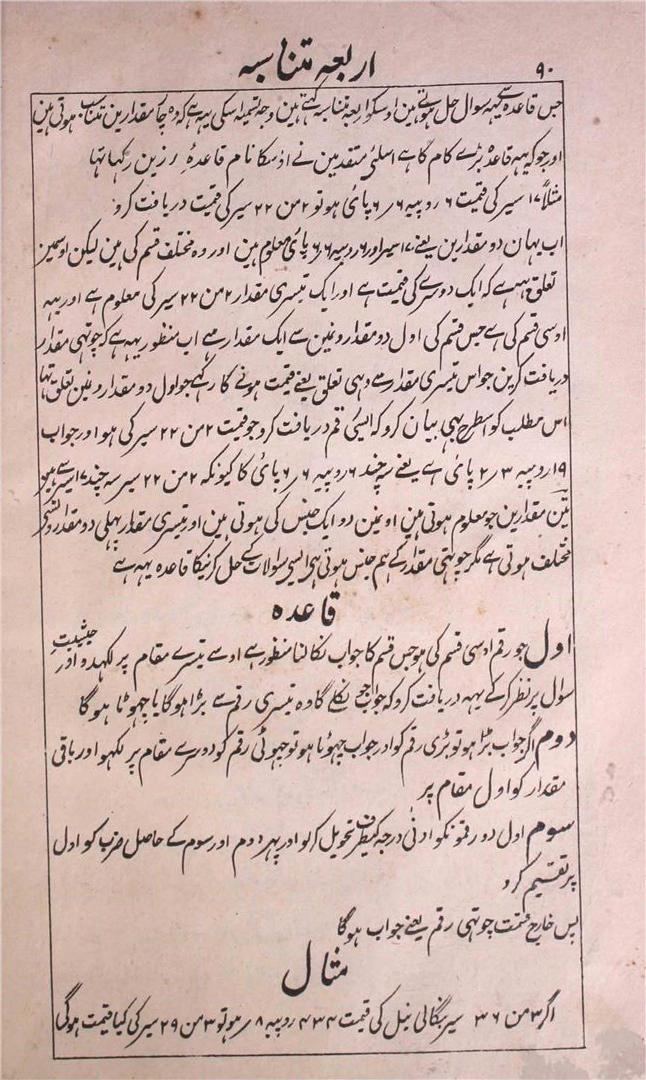 ۹۰
اربعہ متناسبہ
جس قاعدہ سے یہہ سوال حل ہوتے ہین اوسکو اربعہ متناسبہ کہتے ہین وجہ تسمیہ اسکی یہہ ہے کہ وہ چار مقدارین متناسب ہوتی ہین
اور جو کہ یہہ قاعدہ بڑے کام کا ہے اسلئی متقدمین نے اوسکا نام قاعدہ زرین رکہا تہا
مثلاً ۱۷ سیر کی قیمت ۶ روپیہ ۶ر۶ پائی ہو تو ۲ من ۲۲ سیر کی قیمت دریافت کرو
اب یہان دو مقدارین یعنے ۱۷ سیر اور ۶ روپیہ ۶ر۶ پائی معلوم ہین اور وہ مختلف قسم کی ہین لیکن اوسمین
تعلق یہہ ہے کہ ایک دوسرے کی قیمت ہے اور ایک تیسری مقدار ۲ من ۲۲ سیر کی معلوم ہے اور یہہ
اوسی قسم کی ہے جس قسم کی اول دو مقدارونمین سے ایک مقدار ہے اب منظور یہہ ہے کہ چوتہی مقدار
دریافت کرین جو اس تیسری مقدار سے وہی تعلق یعنے قیمت ہونے کا رکہے جو اول دو مقدارونمین تعلق تہا
اس مطلب کو اسطرح بہی بیان کرو کہ ایسی رقم دریافت کرو جو قیمت ۲ من ۲۲ سیر کی ہو اور جواب
۱۹ روپیہ ۳ر۲ پائی ہے یعنے سہ چند ۶ روپیہ ۶ر۶ پائی کا کیونکہ ۲ من ۲۲ سیر سہ چند ۱۷ سیر سے ہو
تین مقدارین جو معلوم ہوتی ہین اونمین دو ایک جنس کی ہوتی ہین اور تیسری مقدار پہلی دو مقدارونسے
مختلف ہوتی ہے مگر چوتہی مقدار کے ہم جنس ہوتی ہی ایسی سوالات کے حل کرنیکا قاعدہ یہہ ہے
قاعدہ
اول جو رقم اوسی قسم کی ہو جس قسم کا جواب نکالنا منظور ہے اوسے تیسرے مقام پر لکہدو اور حیثیت
سوال پر نظر کر کے یہہ دریافت کرو کہ جواب جو نکلے گا وہ تیسری رقم سے بڑا ہوگا یا چہوٹا ہوگا
دوم اگر جواب بڑا ہو تو بڑی رقم کو اور جواب چہوٹا ہو تو چہوٹی رقم کو دوسرے مقام پر لکہو اور باقی
مقدار کو اول مقام پر
سوم اول دو رقمونکو ادنیٰ درجہ کیطرف تحویل کرلو اور پہر دوم اور سوم کے حاصل ضرب کو اول
پر تقسیم کرو
پس خارج قسمت چوتہی رقم یعنے جواب ہوگا
مثال
اگر ۳ من ۳۶ سیر بنگالی نیل کی قیمت ۴۳۴ روپیہ ۸ر ہو تو ۳ من ۲۹ سیر کی کیا قیمت ہوگی